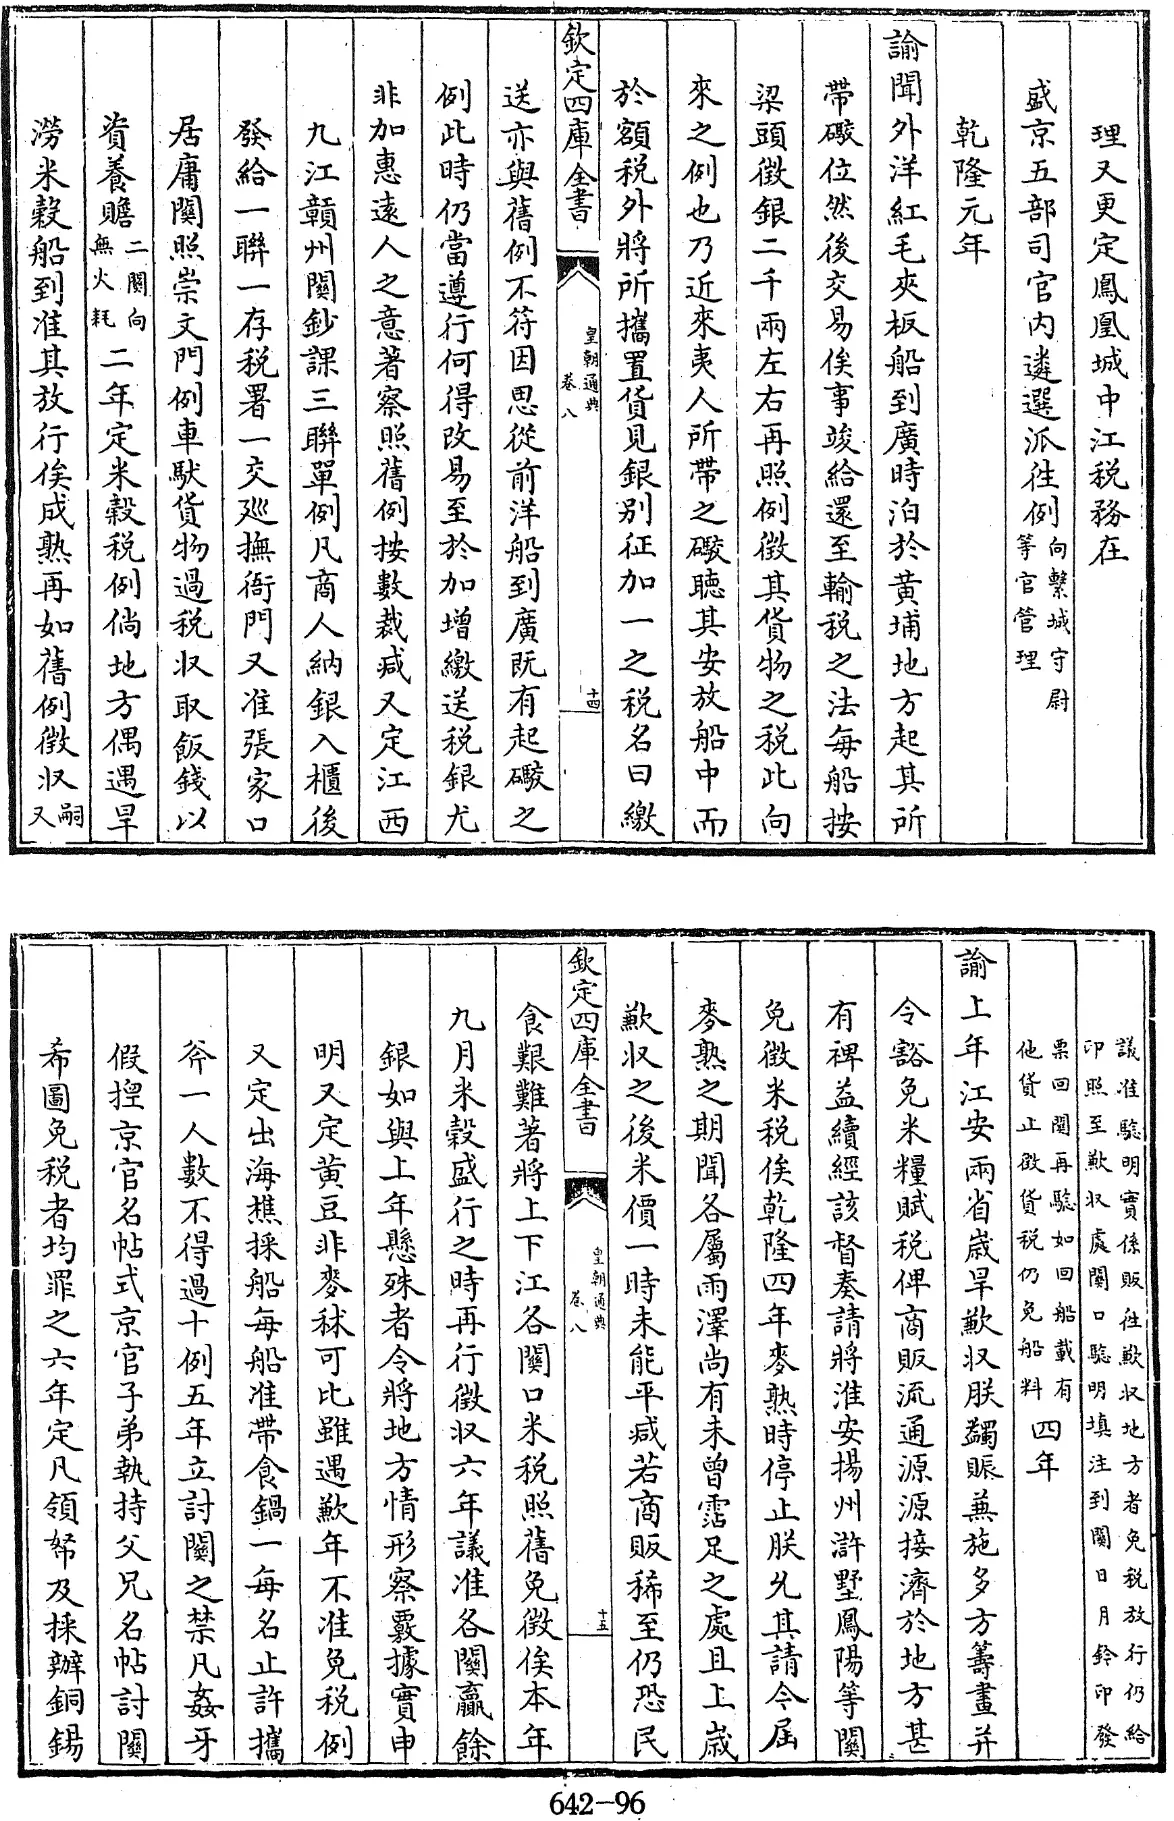 理又更定鳳凰城中江稅務在
盛京五部司官内遴選派徃例向繫城守尉等官管理
乾隆元年
諭聞外洋紅毛夾板船到廣時泊於黄埔地方起其所
帶礮位然後交易俟事竣給還至輸稅之法每船按
梁頭徵銀二千兩左右再照例徵其貨物之稅此向
來之例也乃近來夷人所帶之礮聽其安放船中而
於額稅外將所攜置貨見銀别征加一之稅名曰繳
欽定四庫全書
皇朝通典
卷八
十四
送亦與舊例不符因思從前洋船到廣既有起礮之
例此時仍當遵行何得改易至於加增繳送稅銀尤
非加惠遠人之意著察照舊例按數裁减又定江西
九江贛州關鈔課三聯單例凡商人納銀入櫃後
發給一聯一存稅署一交廵撫衙門又准張家口
居庸關照崇文門例車馱貨物過稅收取飯錢以
資養贍二關向無火耗二年定米榖稅例倘地方偶遇旱
澇米榖船到准其放行俟成熟再如舊例徵收嗣又
議准驗明實係販徃歉收地方者免稅放行仍給
印照至歉收處關口驗明填注到關日月鈐印發
票回關再驗如回船載有
他貨止徴貨稅仍免船料四年
諭上年江安兩省歲旱歉收朕蠲賑兼施多方籌畫并
令豁免米糧賦稅俾商販流通源源接濟於地方甚
有裨益續經該督奏請將淮安揚州滸墅鳳陽等關
免徵米稅俟乾隆四年麥熟時停止朕允其請今屆
麥熟之期聞各屬雨澤尚有未曾霑足之處且上歲
歉收之後米價一時未能平减若商販稀至仍恐民
欽定四庫全書
皇朝通典
卷八
十五
食艱難著將上下江各關口米稅照舊免徵俟本年
九月米榖盛行之時再行徵收六年議准各關贏餘
銀如與上年懸殊者令將地方情形察覈據實申
明又定黄豆非麥秫可比雖遇歉年不准免稅例
又定出海樵採船每船准帶食鍋一每名止許攜
斧一人數不得過十例五年立討關之禁凡姦牙
假揑京官名帖式京官子弟執持父兄名帖討關
希圖免稅者均罪之六年定凡領帑及採辦銅錫
642-96